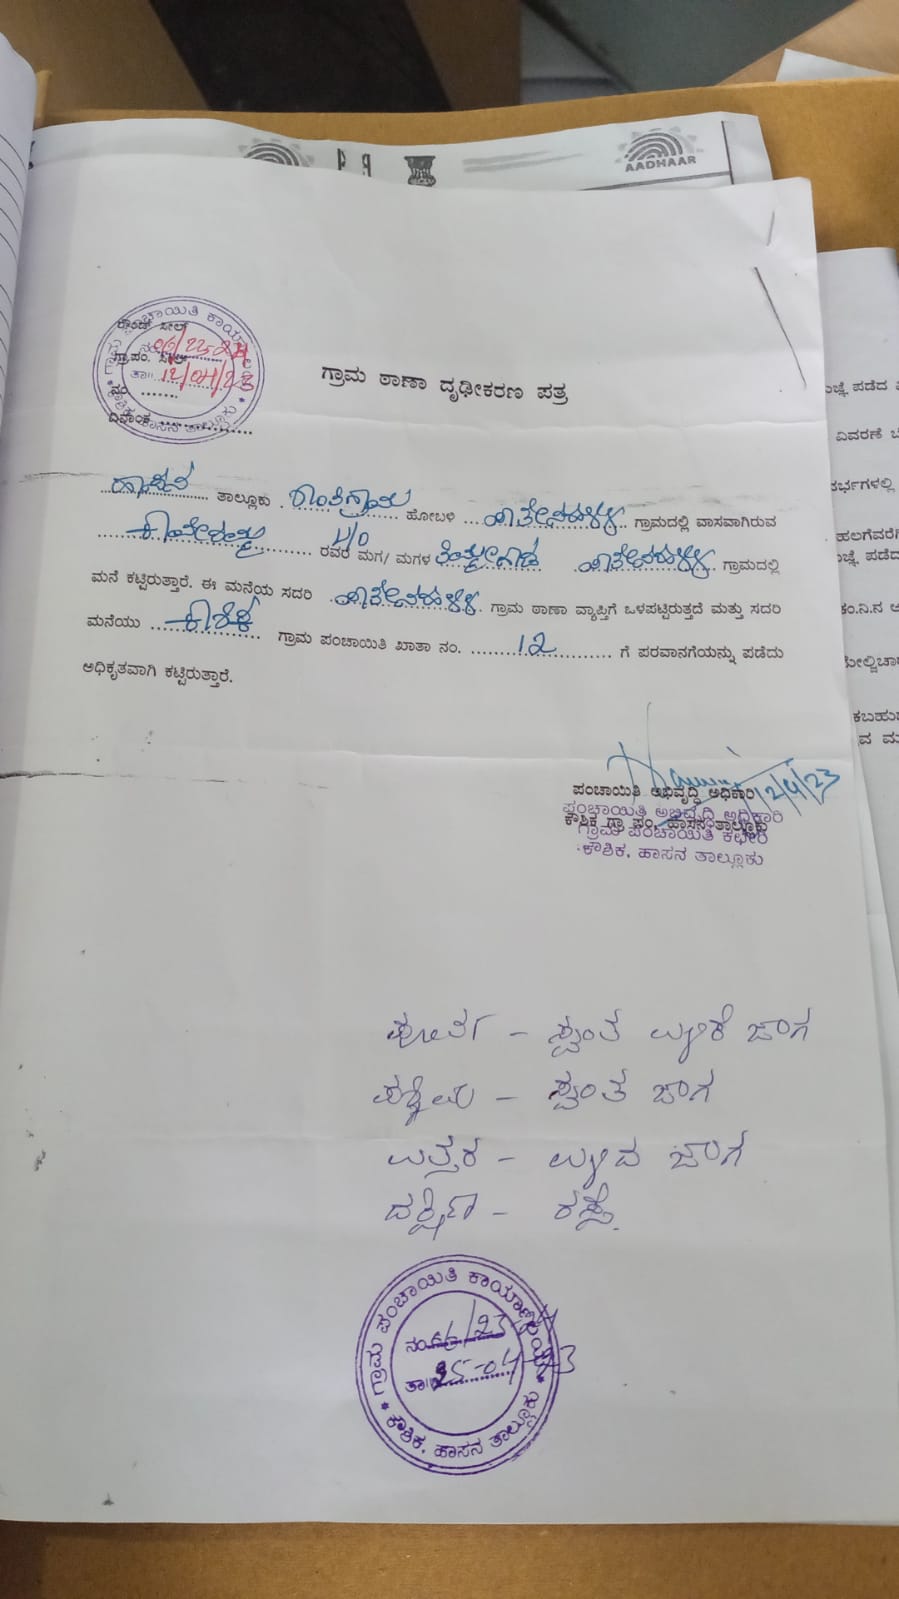 AADHAAR
ಗ್ರಾಮ ಪಂಚಾಯಿತಿ ಕಾರ್ಯಾಲಯ
ರೌಂಡ್ ಸೀಲ್
ನಂ. 06/23-24
ಗ್ರಾ.ಪಂ. ಸೀಲ್
ತಾ॥ 12/04/23
ನಂ .......
ದಿನಾಂಕ ................
ಕೌಶಿಕ, ಹಾಸನ ತಾಲ್ಲೂಕು
ಗ್ರಾಮ ಠಾಣಾ ದೃಢೀಕರಣ ಪತ್ರ
ಹಾಸನ ತಾಲ್ಲೂಕು ಶಾಂತಿಗ್ರಾಮ ಹೋಬಳಿ ಗ್ರಾಮದಲ್ಲಿ ವಾಸವಾಗಿರುವ
ರವರ ಮಗ/ ಮಗಳ ಗ್ರಾಮದಲ್ಲಿ
ಮನೆ ಕಟ್ಟಿರುತ್ತಾರೆ. ಈ ಮನೆಯ ಸದರಿ ಗ್ರಾಮ ಠಾಣಾ ವ್ಯಾಪ್ತಿಗೆ ಒಳಪಟ್ಟಿರುತ್ತದೆ ಮತ್ತು ಸದರಿ
ಮನೆಯು ಕೌಶಿಕ ಗ್ರಾಮ ಪಂಚಾಯಿತಿ ಖಾತಾ ನಂ. 12 ಗೆ ಪರವಾನಗೆಯನ್ನು ಪಡೆದು
ಅಧಿಕೃತವಾಗಿ ಕಟ್ಟಿರುತ್ತಾರೆ.
12/4/23
ಪಂಚಾಯಿತಿ ಅಭಿವೃದ್ಧಿ ಅಧಿಕಾರಿ
ಪಂಚಾಯಿತಿ ಅಭಿವೃದ್ಧಿ ಅಧಿಕಾರಿ
ಕೌಶಿಕ ಗ್ರಾ ಪಂ. ಹಾಸನ ತಾಲ್ಲೂಕು
ಗ್ರಾಮ ಪಂಚಾಯಿತಿ ಕಛೇರಿ
ಕೌಶಿಕ, ಹಾಸನ ತಾಲ್ಲೂಕು
ಪೂರ್ವ - ಸ್ವಂತ ಉಳಿಕೆ ಜಾಗ
ಪಶ್ಚಿಮ - ಸ್ವಂತ ಜಾಗ
ಉತ್ತರ - ಉಳಿದ ಜಾಗ
ದಕ್ಷಿಣ - ರಸ್ತೆ
ಗ್ರಾಮ ಪಂಚಾಯಿತಿ ಕಾರ್ಯಾಲಯ
ನಂ. 06/23-24
ತಾ॥ 25-04-23
ಕೌಶಿಕ, ಹಾಸನ ತಾಲ್ಲೂಕು